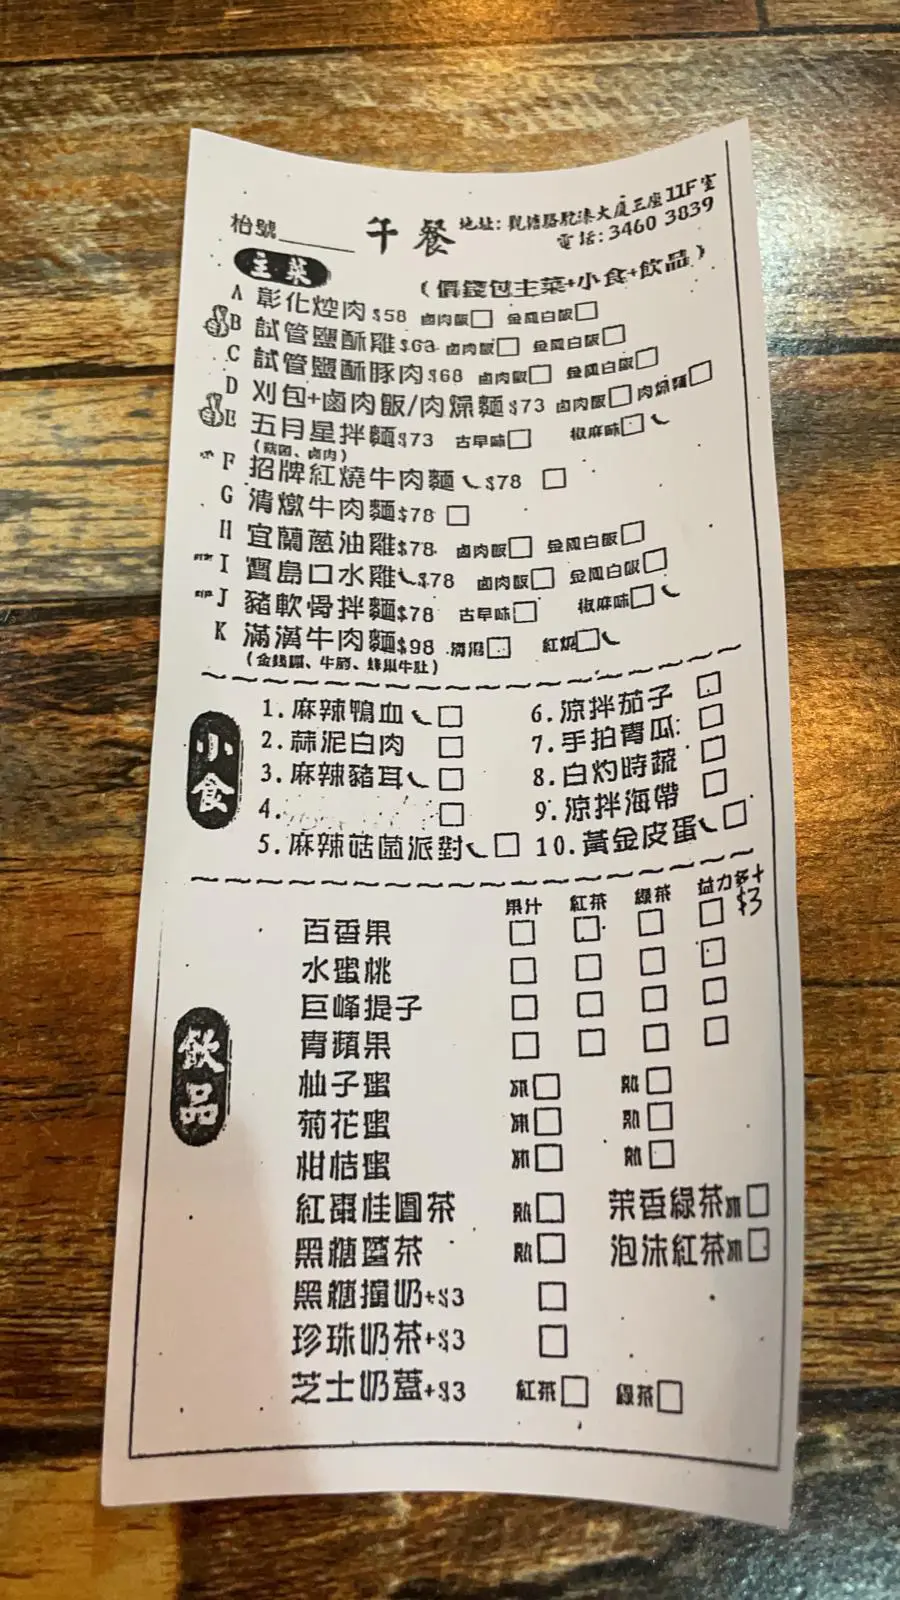 枱號______ 午餐 地址:觀塘駱駝漆大廈三座11F室
電話:3460 3839
主菜
(價錢包主菜+小食+飲品)
A 彰化焢肉$58 鹵肉飯□ 金鳳白飯□
B 試管鹽酥雞$63 鹵肉飯□ 金鳳白飯□
C 試管鹽酥豚肉$68 鹵肉飯□ 金鳳白飯□
D 刈包+鹵肉飯/肉燥麵$73 鹵肉飯□ 肉燥麵□
E 五月星拌麵$73 古早味□ 椒麻味□
(菇菌、鹵肉)
F 招牌紅燒牛肉麵 $78 □
G 清燉牛肉麵$78 □
H 宜蘭蔥油雞$78 鹵肉飯□ 金鳳白飯□
I 寶島口水雞 $78 鹵肉飯□ 金鳳白飯□
J 豬軟骨拌麵$78 古早味□ 椒麻味□
K 滿漢牛肉麵$98 清湯□ 紅燒□
(金錢𦟌、牛筋、蜂巢牛肚)
小食
1.麻辣鴨血 □ 6.涼拌茄子 □
2.蒜泥白肉 □ 7.手拍青瓜 □
3.麻辣豬耳 □ 8.白灼時蔬 □
4. □ 9.涼拌海帶 □
5.麻辣菇菌派對 □ 10.黃金皮蛋 □
飲品
果汁 紅茶 綠茶 益力多+$3
百香果 □ □ □ □
水蜜桃 □ □ □ □
巨峰提子 □ □ □ □
青蘋果 □ □ □ □
柚子蜜 凍□ 熱□
菊花蜜 凍□ 熱□
柑桔蜜 凍□ 熱□
紅棗桂圓茶 熱□ 茉香綠茶凍□
黑糖薑茶 熱□ 泡沫紅茶凍□
黑糖撞奶+$3 □
珍珠奶茶+$3 □
芝士奶蓋+$3 紅茶□ 綠茶□